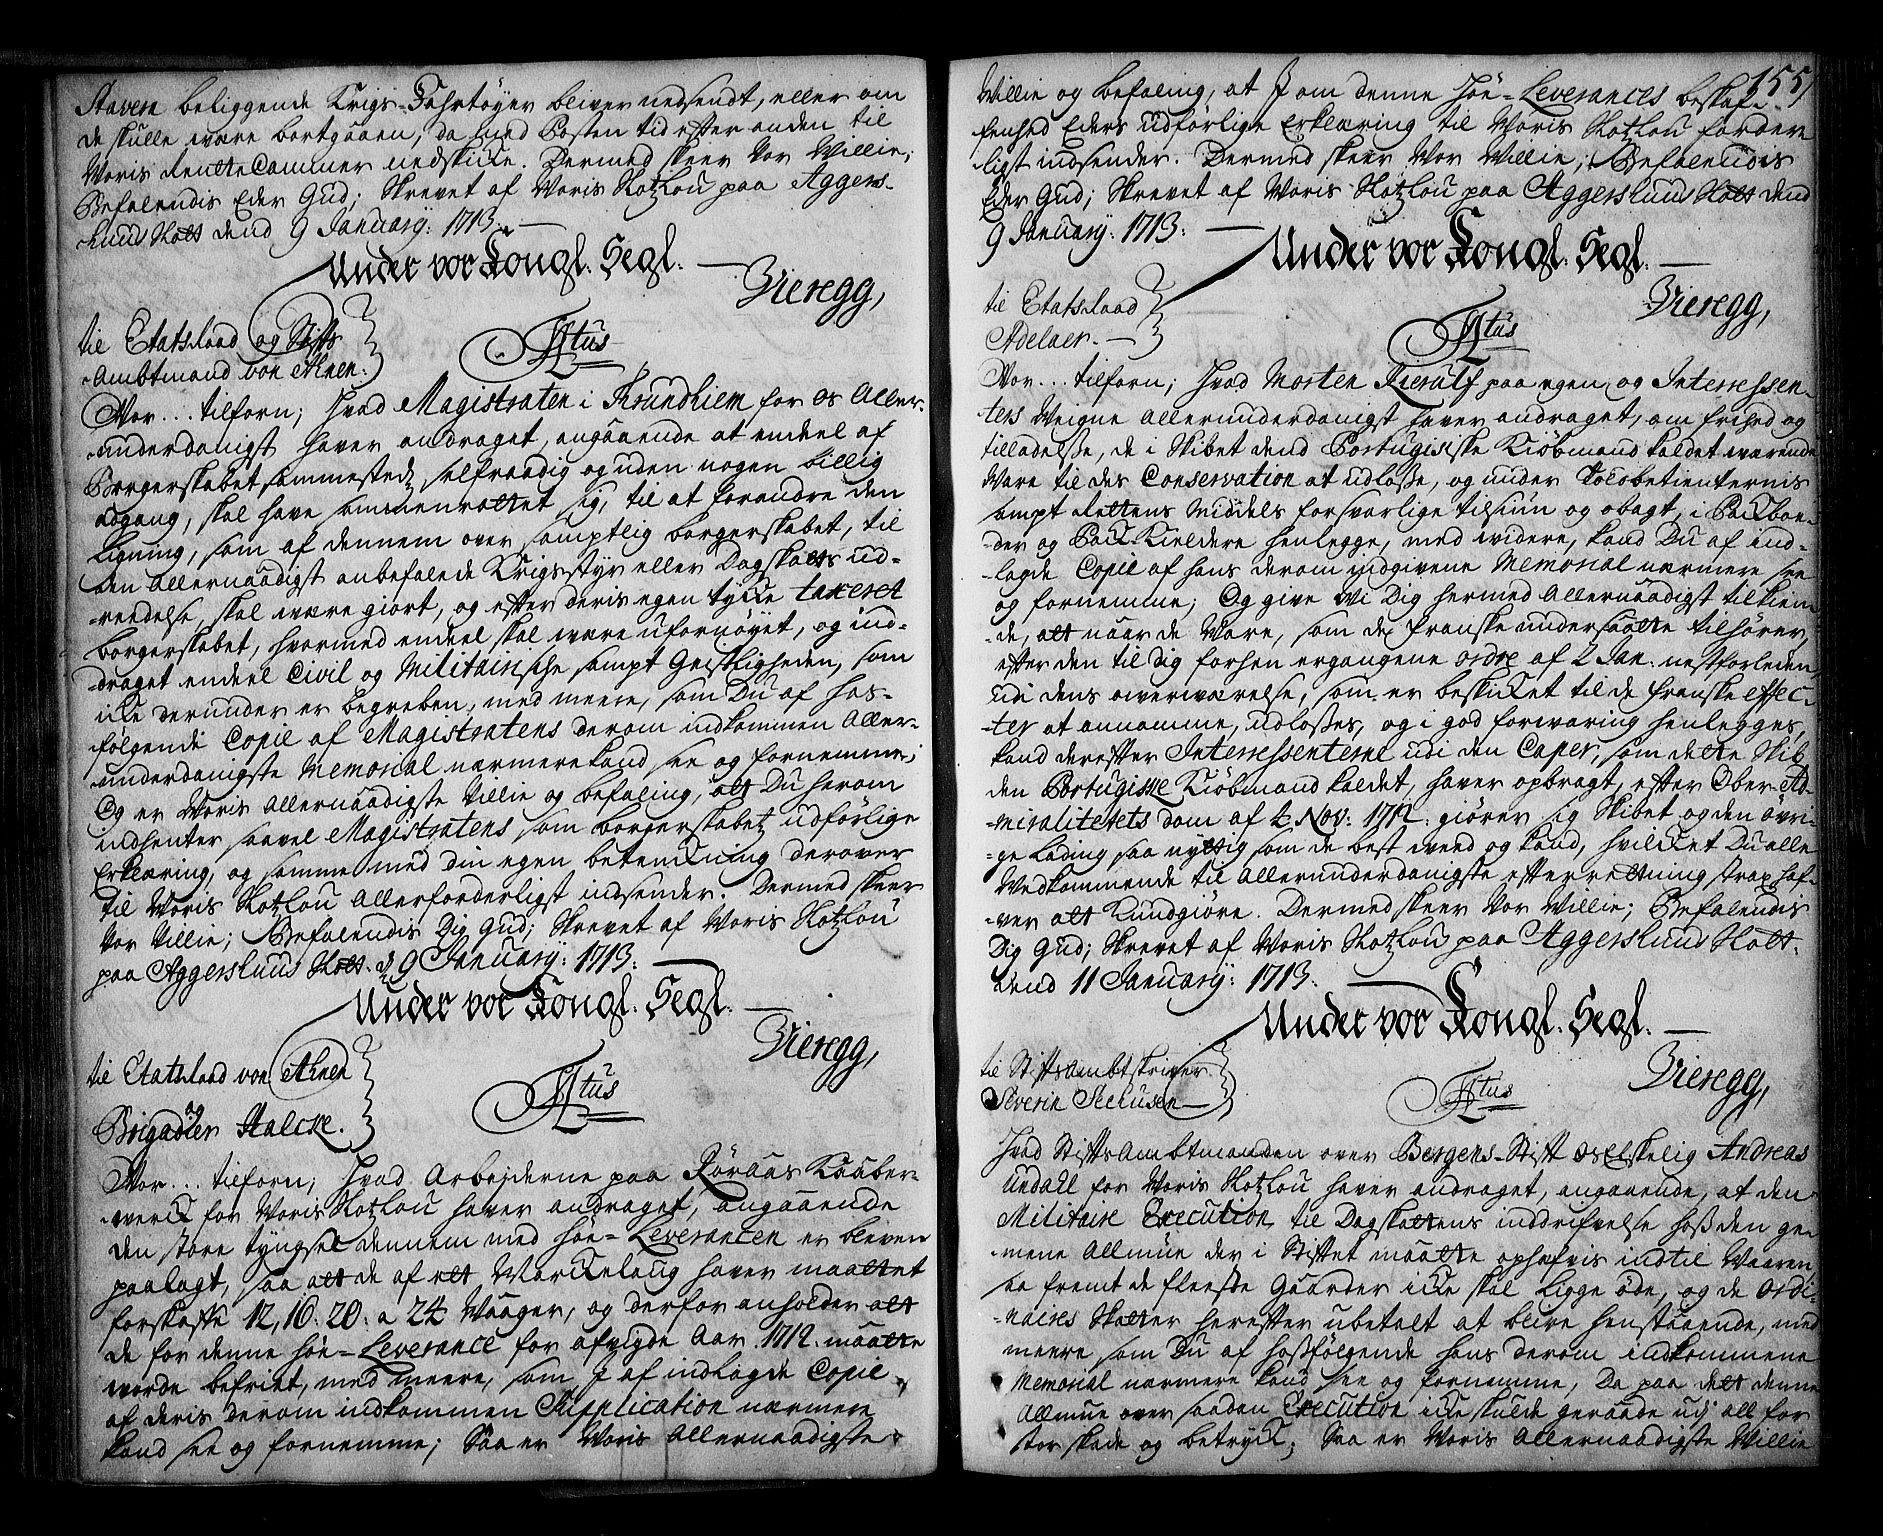 Stavern beliggende Krigs-Fahrtøyer bliver nedsendt, eller om
de skulle være bortgaaen, da med Posten tid efter anden til
Voris RenteCammer nedskicke. Dermed skeer Vor Villie,
Befalendis Eder Gud; Skrevet af Voris Slotzlou paa Aggers-
huus Slott dend 9 January: 1713.
Under vor Kongl. Segl.
Vieregg,
til EtatsRaad og Stifts
Ambtmand von Ahnen.
Ftus
Vor... tilforn; Hvad Magistraten i Trundhiem for os Aller-
underdanigst haver andraget, angaaende at endeel af
Borgerskabet sammestedz selfraadig og uden nogen billig
adgang, skal have sammenrottet sig, til at forandre den
Ligning, som af dennem over samptlig borgerskabet, til
den allernaadigst anbefalede Krigsstyr eller Dagskatts ud-
redelse, skal være giort, og efter deris egen tycke taxeret
borgerskabet, hvormed endeel skal være ufornøyet, og ind-
draget endeel Civil og Militairische sampt Geistligheden, som
icke derunder er begreben, med meere, som Du af hos-
følgende Copie af Magistratens derom indkommen Aller-
underdanigste Memorial nærmere kand see og fornemme;
Og er Voris Allernaadigste Villie og befaling, att Du herom
indhenter saavel Magistratens som borgerskabetz udførlige
Erklæring, og samme med din egen betenckning derover
til Voris Slotzlou allerforderligst indsender. Dermed skeer
Vor Villie; Befalendis Dig Gud; Skrevet af Voris Slotzlou
paa Aggershuus Slott. d. 9 January: 1713.
Under vor Kongl. Segl.
Vieregg,
til Etatsraad von Ahnen
og
Brigadier Stalcke.
Ftus
Vor... tilforn; Hvad Arbejderne paa Røraas Kaaber-
werck for Voris Slotzlou haver andraget, angaaende
den store tyngsel dennem med Høe-Leverancen er bleven
paalagt, saa att de af ett Marckelaug haver maattet
forskaffe 12, 16. 20. a 24 Vaager, og derfor anholder att
de for denne Høe-Leverance for afvigde Aar 1712. maatte
vorde befriet, med meere, som I af indlagde Copie
af deris derom indkommen Supplication nærmere
kand see og fornemme; Saa er Voris Allernaadigste
155,
Villie og befaling, at I om denne Høe-Leverances beskaf-
fenhed Eders udførlige Erklæring til Voris Slotzlou fordere
ligst indsender. Dermed skeer Vor Villie; Befalendis
Eder Gud; Skrevet af Voris Slotzlou paa Aggershuus Slott dend
9 January. 1713.
Under vor Kongl. Segl.
Vieregg,
til EtatsRaad
Adelaer.
Ftus
Vor... tilforn; Hvad Morten Fierulf paa egen og Interressen-
ters Veigne allerunderdanigst haver andraget, om frihed og
tilladelse, de i Skibet dend Portugisiske Kiøbmand kaldet værende
Vare til des Conservation at udlosse, og under Tolobetienternis
sampt Rettens Middels forsvarlige tilsiun og obagt, i Packboe-
der og Pack-Kieldere henlegge, med videre, kand Du af ind-
lagde Copie af hans derom indgivene Memorial nærmere see
og fornemme; Og give Vi Dig hermed Allernaadigst tilkien-
de, att naar de Vare, som de franske undersaatte tilhører,
efter den til Dig forhen ergangene ordre af 2 Jan. nestforleden,
udi dens overværelse, som er beskicket til de franske effec-
ter at annamme, udlosses, og i god forvaring henlegges,
kand derefter Interressenterne udi den Caper, som dette Skib
den Portugisse Kiøbmand kaldet, haver opbragt, efter Ober-Ad-
miralitetets dom af 4 Nov: 1712. giører sig Skibet og den øvri-
ge Lading saa nyttig som de best veed og kand, hvilcket Du alle
Vedkommende til allerunderdanigste efterretning strax haf-
ver att Kundgiøre. Dermed skeer Vor Villie; Befalendis
Dig Gud; Skrevet af Voris Slotzlou paa Aggershuus Slott.
dend 11 January: 1713.
Under vor Kongl. Segl.
Vieregg,
til StiftsAmbtskriver
Severin Seehusen
Ftus
Hvad StiftsAmbtmanden over Bergens-Stift os Elskelig Andreas
Undahl for Voris Slotzlou haver andraget, angaaende, at den
Militaire Execution til Dagskattens inddrifvelse hoss den ge-
mene Allmue der i Stiftet maatte ophæfvis indtil Vaaren
saa fremt de fleeste Gaarder icke skal ligge øde, og de ordi-
naires Skatter herefter ubetalt at blive henstaaende, med
meere som Du af hossfølgende hans derom indkommene
Memorial nærmere kand see og fornemme, Da paa det denne
Allmue over saadan Execution icke skulde geraade udj all for
stor skade og betryck; Saa er Voris Allernaadigste Villie